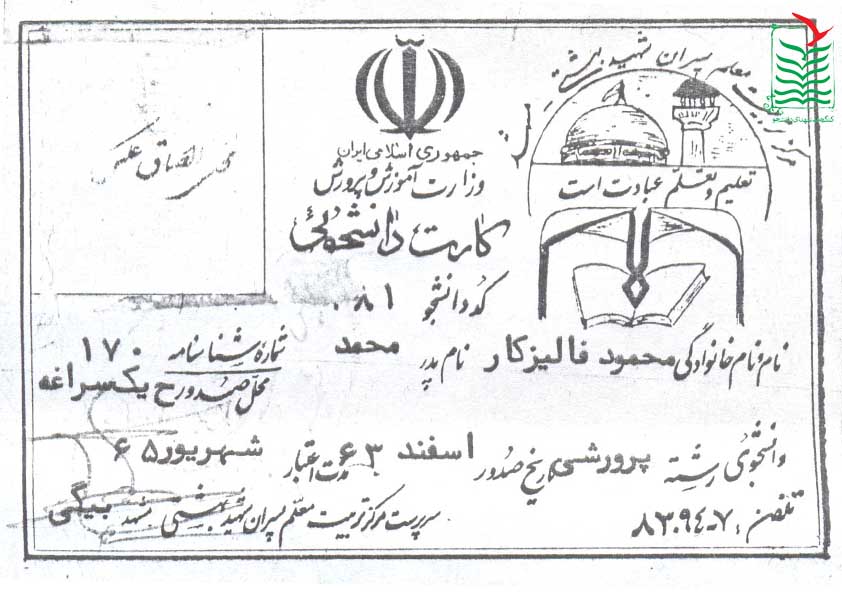 مرکز تربیت معلم پسران شهید بهشتی
تعلیم و تعلّم عبادت است
جمهوری اسلامی ایران
وزارت آموزش و پرورش
کارت دانشجوئی
محل الصاق عکس
کد دانشجو ۰۸۱
نام و نام خانوادگی محمود فالیزکار نام پدر محمد شماره شناسنامه ۱۷۰
محل صدور ح یکسراغه
دانشجوی رشته پرورشی تاریخ صدور اسفند ۶۳ مدت اعتبار شهریور ۶۵
تلفن: ۷-۸۳۰۹۴ سرپرست مرکز تربیت معلم پسران شهید بهشتی مشهد بیگی